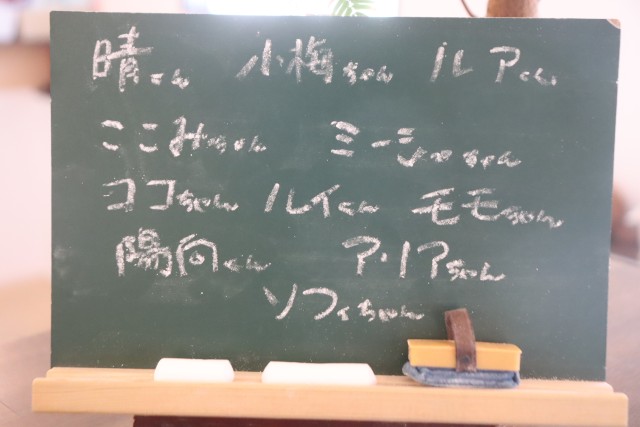 晴くん 小梅ちゃん ルアくん
ここみちゃん ミーシャちゃん
ココちゃん ルイくん モモちゃん
陽向くん アリアちゃん
ソフィちゃん